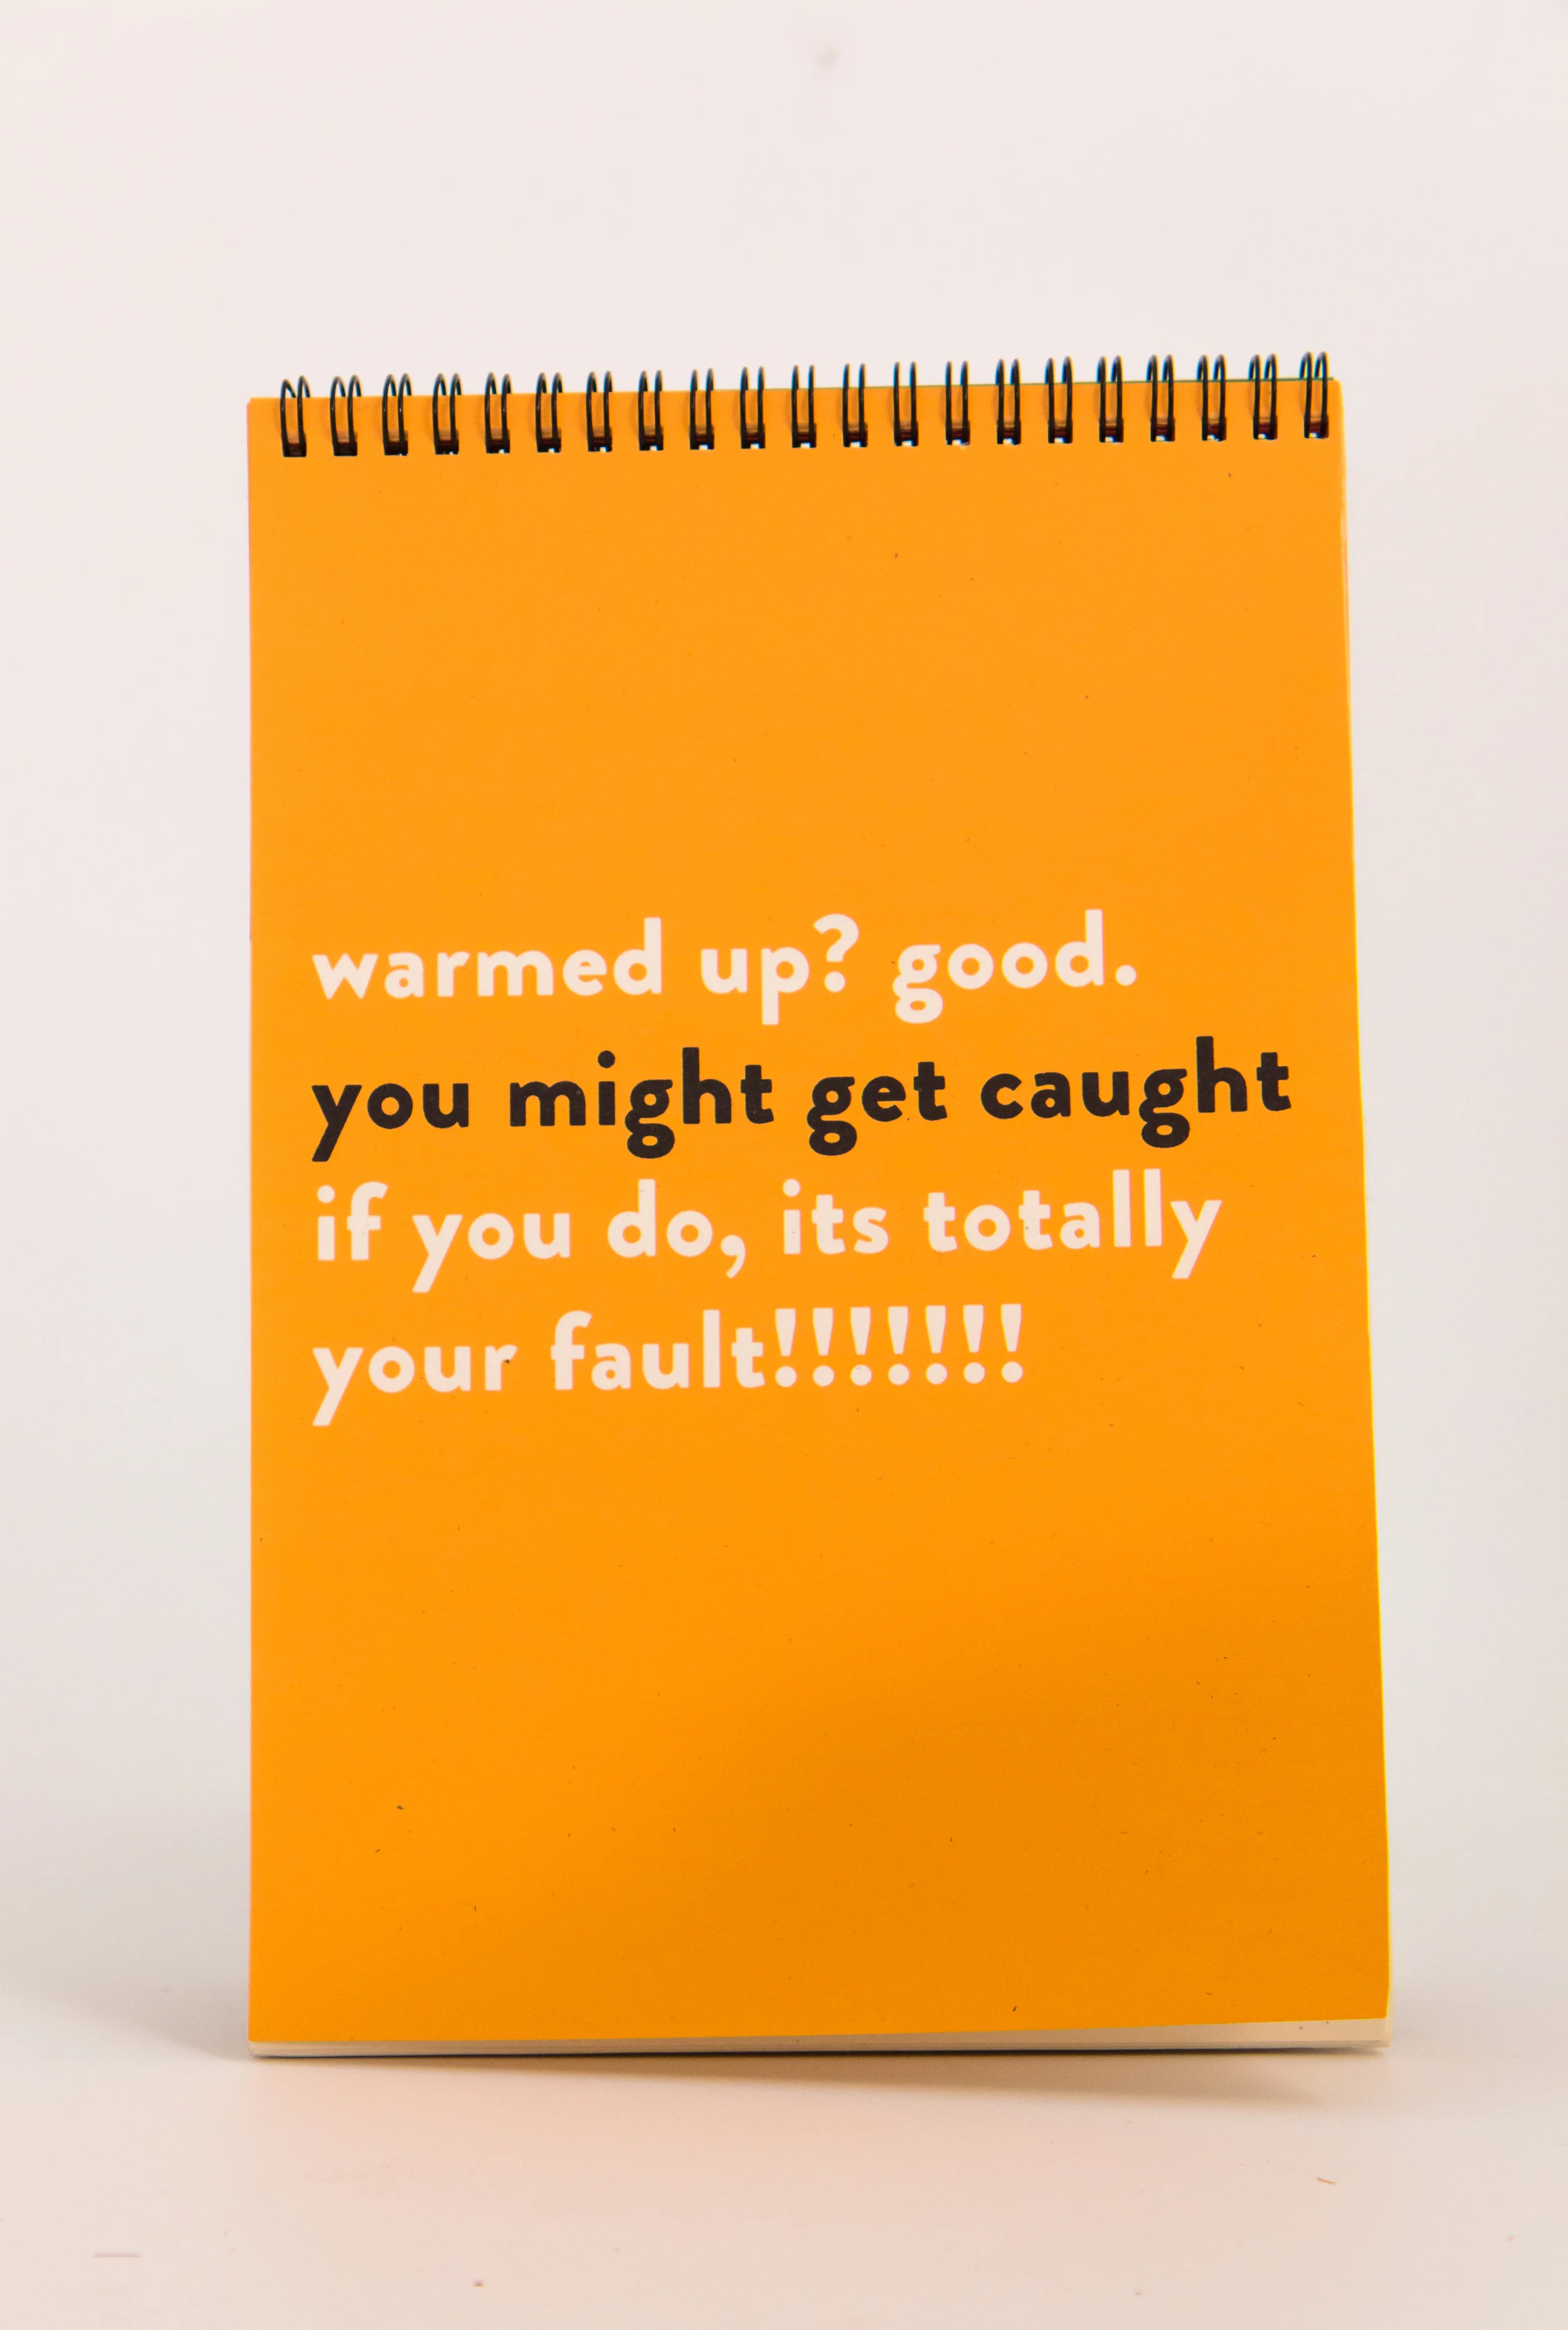 warmed up? good.
you might get caught
if you do, its totally
your fault!!!!!!!